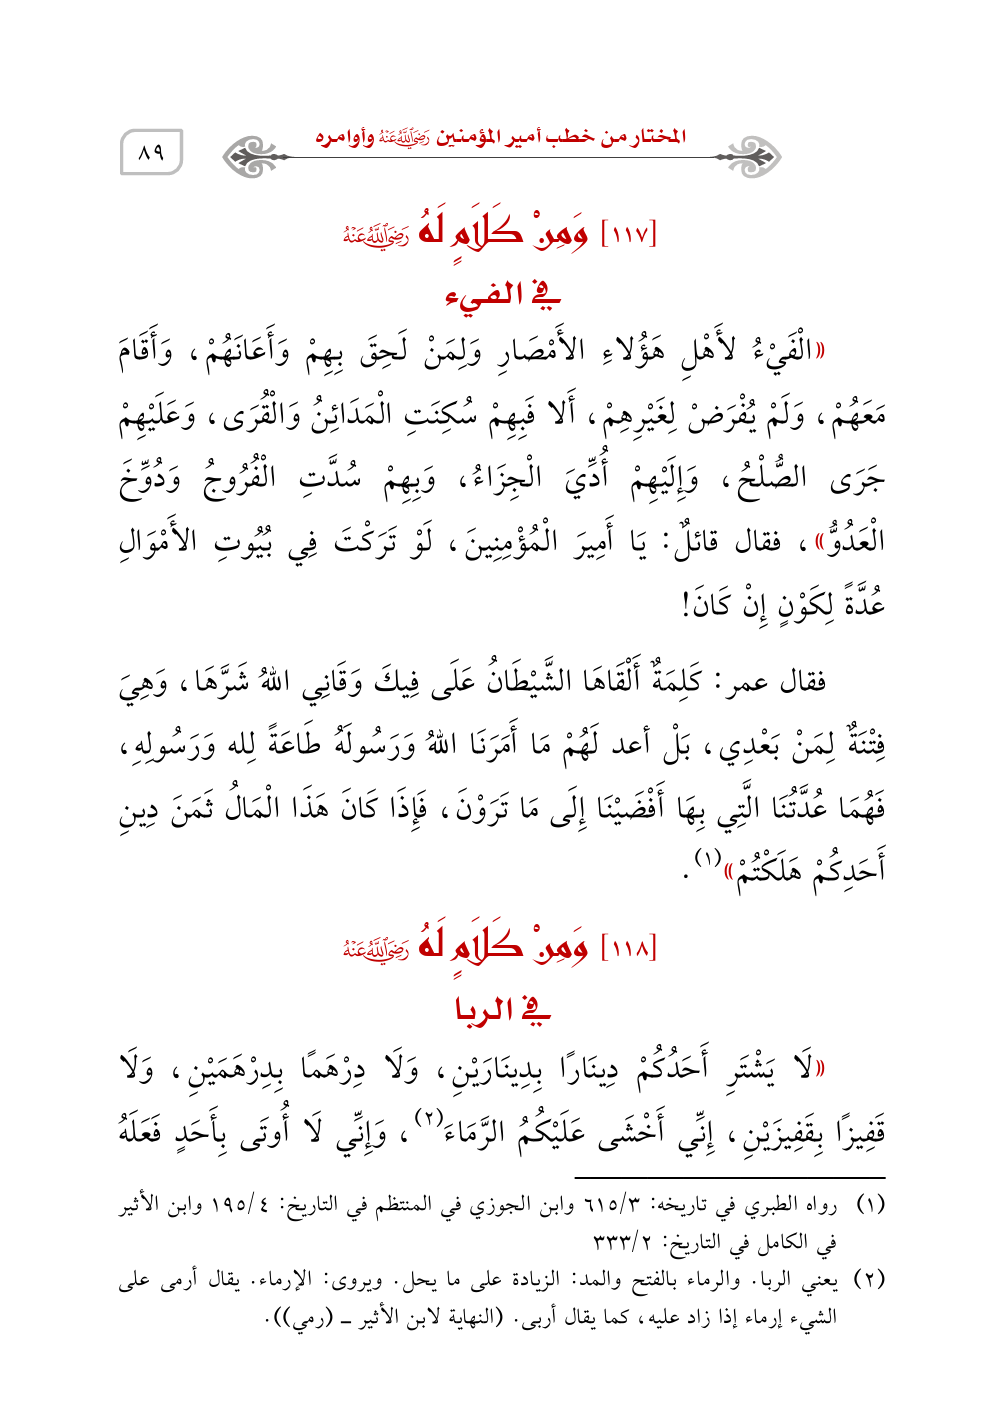 المختار من خطب أمير المؤمنين رَضِيَ اللَّهُ عَنْهُ وأوامره
٨٩
[١١٧] وَمِنْ كَلَامٍ لَهُ رَضِيَ اللَّهُ عَنْهُ
في الفيء
«الْفَيْءُ لأَهْلِ هَؤُلاءِ الأَمْصَارِ وَلِمَنْ لَحِقَ بِهِمْ وَأَعَانَهُمْ، وَأَقَامَ
مَعَهُمْ، وَلَمْ يُفْرَضْ لِغَيْرِهِمْ، أَلا فَبِهِمْ سُكِنَتِ الْمَدَائِنُ وَالْقُرَى، وَعَلَيْهِمْ
جَرَى الصُّلْحُ، وَإِلَيْهِمْ أُدِّيَ الْجِزَاءُ، وَبِهِمْ سُدَّتِ الْفُرُوجُ وَدُوِّخَ
الْعَدُوُّ»، فقال قائلٌ: يَا أَمِيرَ الْمُؤْمِنِينَ، لَوْ تَرَكْتَ فِي بُيُوتِ الأَمْوَالِ
عُدَّةً لِكَوْنٍ إِنْ كَانَ!
فقال عمر: كَلِمَةٌ أَلْقَاهَا الشَّيْطَانُ عَلَى فِيكَ وَقَانِي اللهُ شَرَّهَا، وَهِيَ
فِتْنَةٌ لِمَنْ بَعْدِي، بَلْ أعد لَهُمْ مَا أَمَرَنَا اللهُ وَرَسُولَهُ طَاعَةً لِله وَرَسُولِهِ،
فَهُمَا عُدَّتُنَا الَّتِي بِهَا أَفْضَيْنَا إِلَى مَا تَرَوْنَ، فَإِذَا كَانَ هَذَا الْمَالُ ثَمَنَ دِينِ
أَحَدِكُمْ هَلَكْتُمْ»(١).
[١١٨] وَمِنْ كَلَامٍ لَهُ رَضِيَ اللَّهُ عَنْهُ
في الربا
«لَا يَشْتَرِ أَحَدُكُمْ دِينَارًا بِدِينَارَيْنِ، وَلَا دِرْهَمًا بِدِرْهَمَيْنِ، وَلَا
قَفِيزًا بِقَفِيزَيْنِ، إِنِّي أَخْشَى عَلَيْكُمُ الرَّمَاءَ(٢)، وَإِنِّي لَا أُوتَى بِأَحَدٍ فَعَلَهُ
(١) رواه الطبري في تاريخه: ٦١٥/٣ وابن الجوزي في المنتظم في التاريخ: ١٩٥/٤ وابن الأثير
في الكامل في التاريخ: ٣٣٣/٢
(٢) يعني الربا. والرماء بالفتح والمد: الزيادة على ما يحل. ويروى: الإرماء. يقال أرمى على
الشيء إرماء إذا زاد عليه، كما يقال أربى. (النهاية لابن الأثير ـ (رمي)).